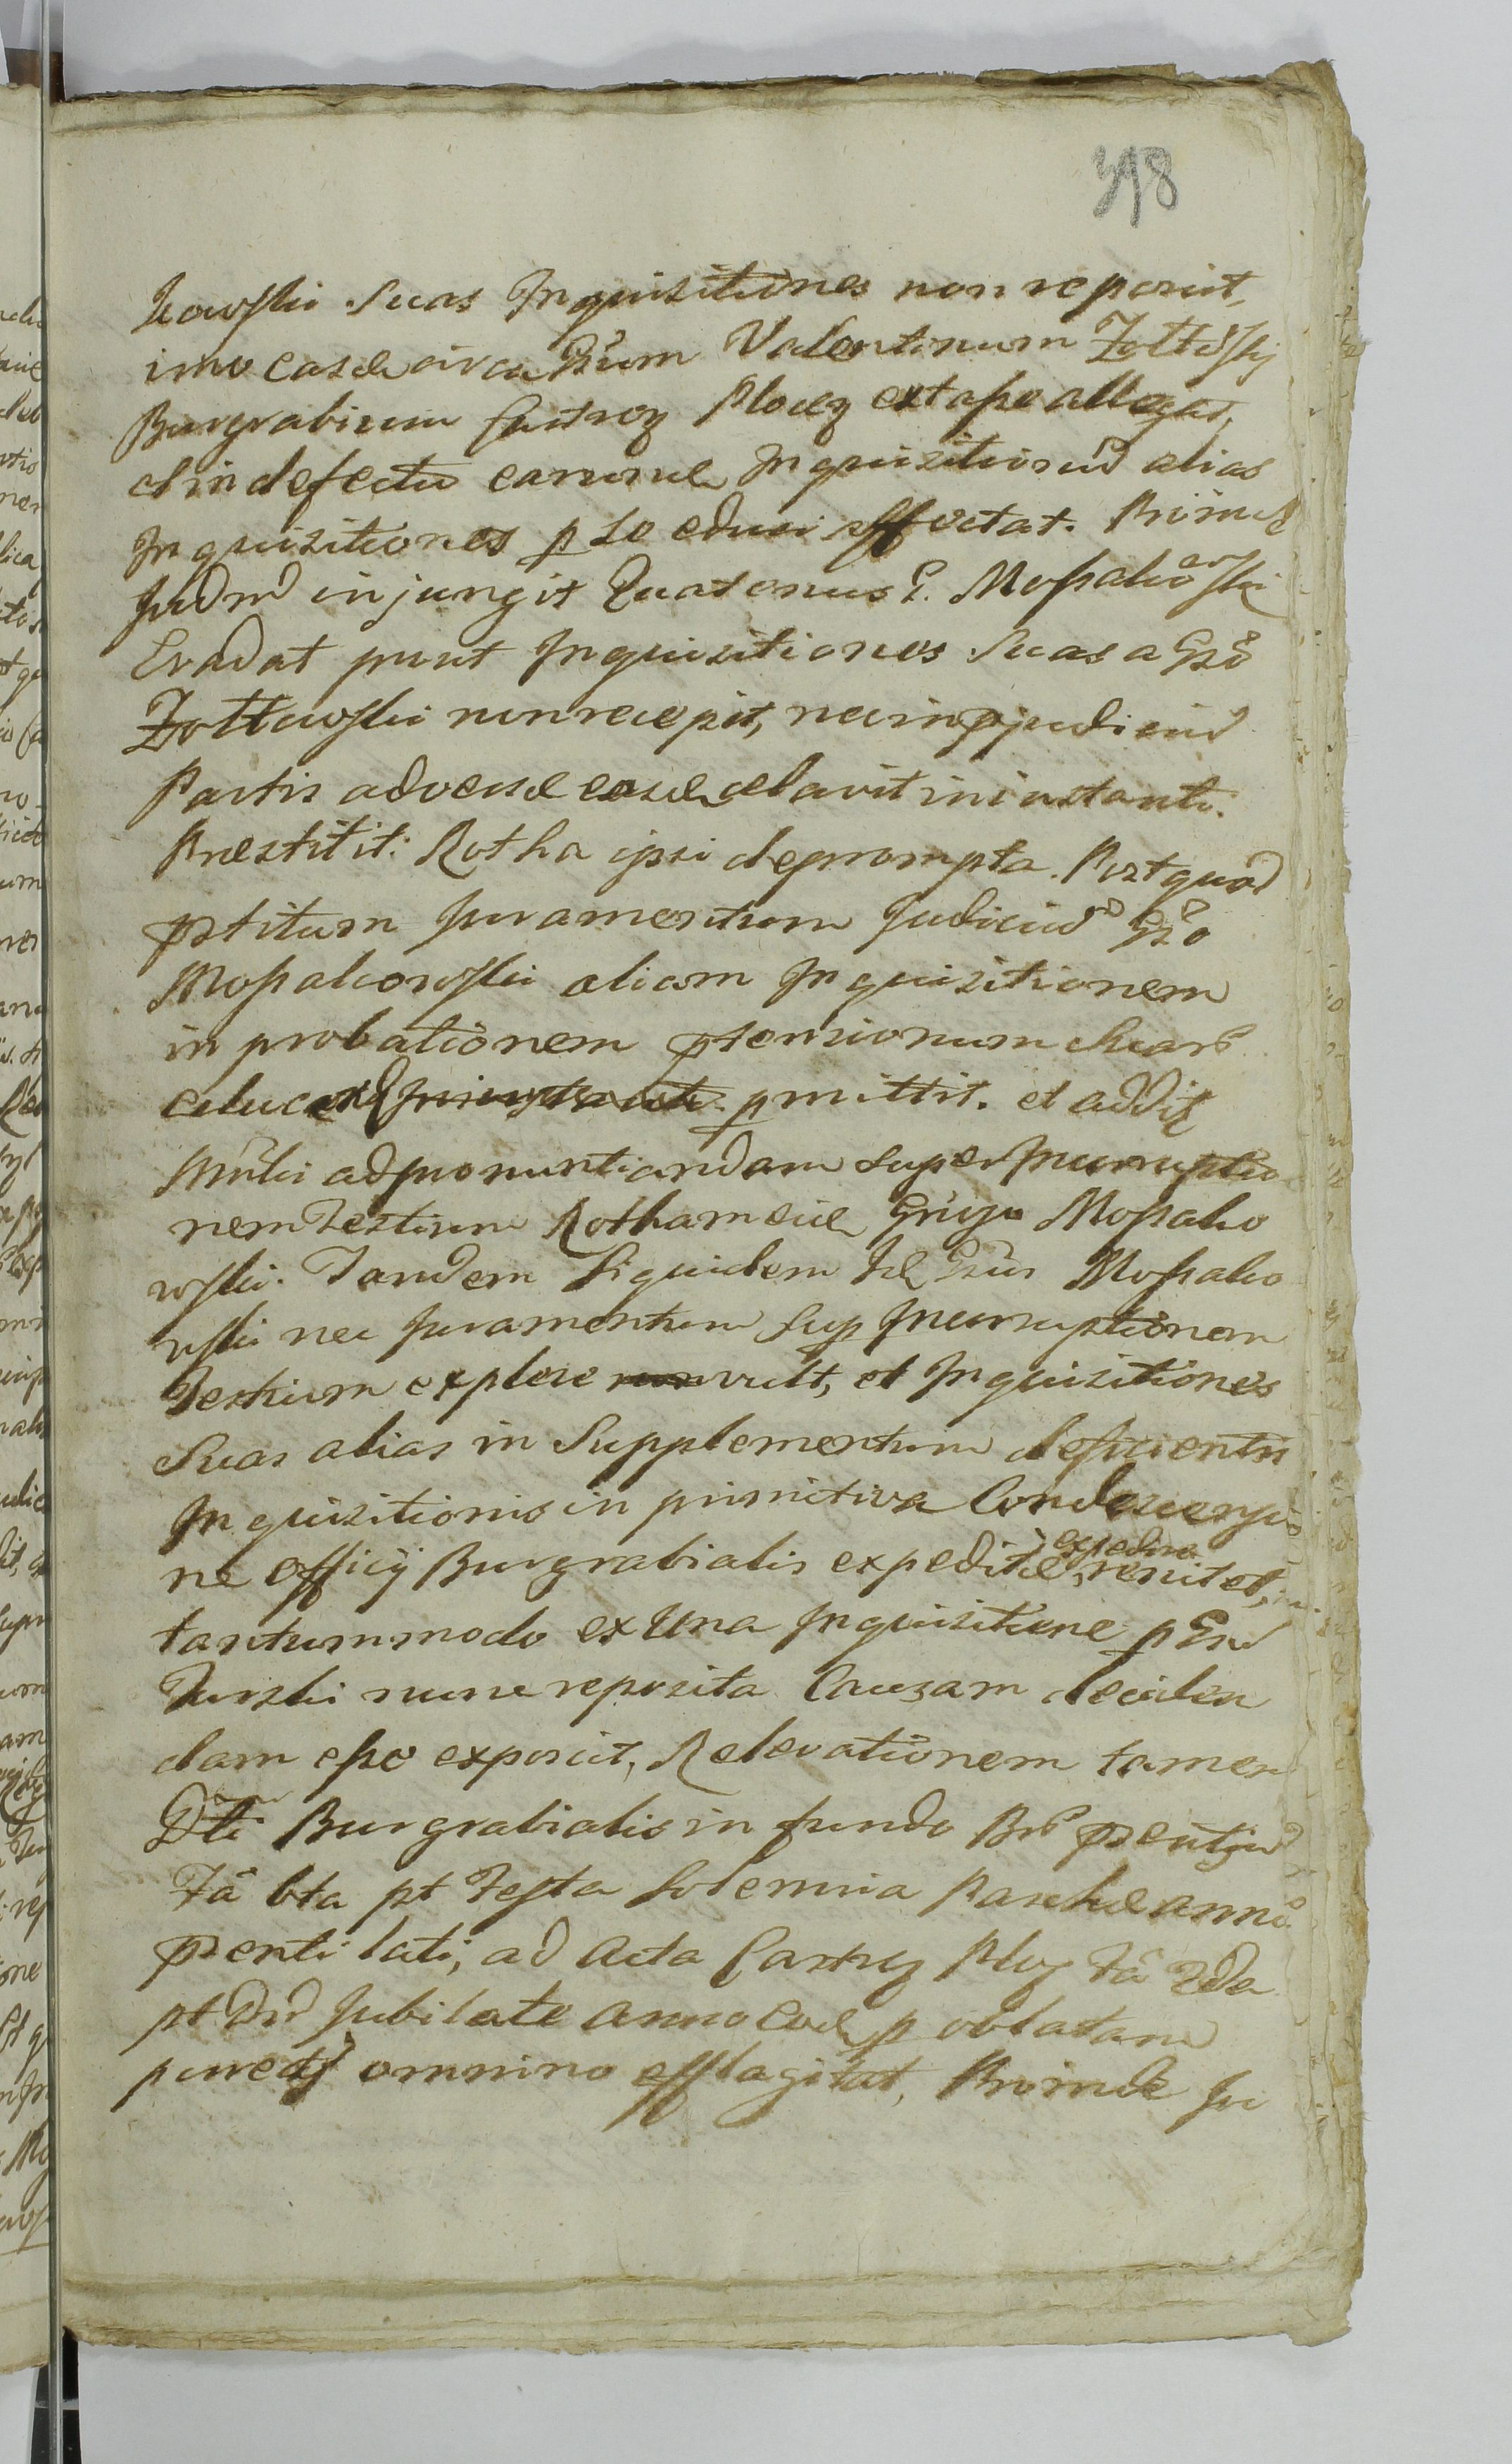 398
kowski Suas Inquisitiones non reposuit,
imo easde circa Gsum Valentinum Zołtowskj
Burgrabium Castren Plocen extare allegat,
et in defectu earunde Inquisitionũ alias
Inquisitiones p se educi affectat. Proinde
Judm injungit Quatenus G. Mossakowski
Evadat prout Inquisitiones Suas a Gso
Zołtowski non recepit, nec in pjudicium
Partis adversæ easde celavit in instanti.
Præstitit: Rotha ipsi deprompta. Post quod
pstitum Juramentum Judicium Gso
Mossakowski aliam Inquisitionem
in probationem ptensionum Suarũ
educere pmittit. et addit
ad pronuntiandam super Incorruptio
nem Testium Rotham
wski. Tandem Siquidem Gsus Mossako
wski nec Juramentum Sup Incorruptionem
Testium explere vult, et Inquisitiones
Suas alias in Supplementum deficientis
Inquisitionis in primitiva Condescensio
ne officij Burgrabialis expeditæ, expedire renitet,
tantummodo ex Una Inquisitione p Gsũ
Turski nunc reposita Causam deciden
dam esse exposcit, Relevationem tamen
Dti Burgrabialis in fundo Brũ psentium
pt Festa Solennia Paschæ anni
psentis lati, ad Acta Castren Plocen
pt Dnm Jubilate anno eode p oblatam
omnino efflagitat, Proinde Ju